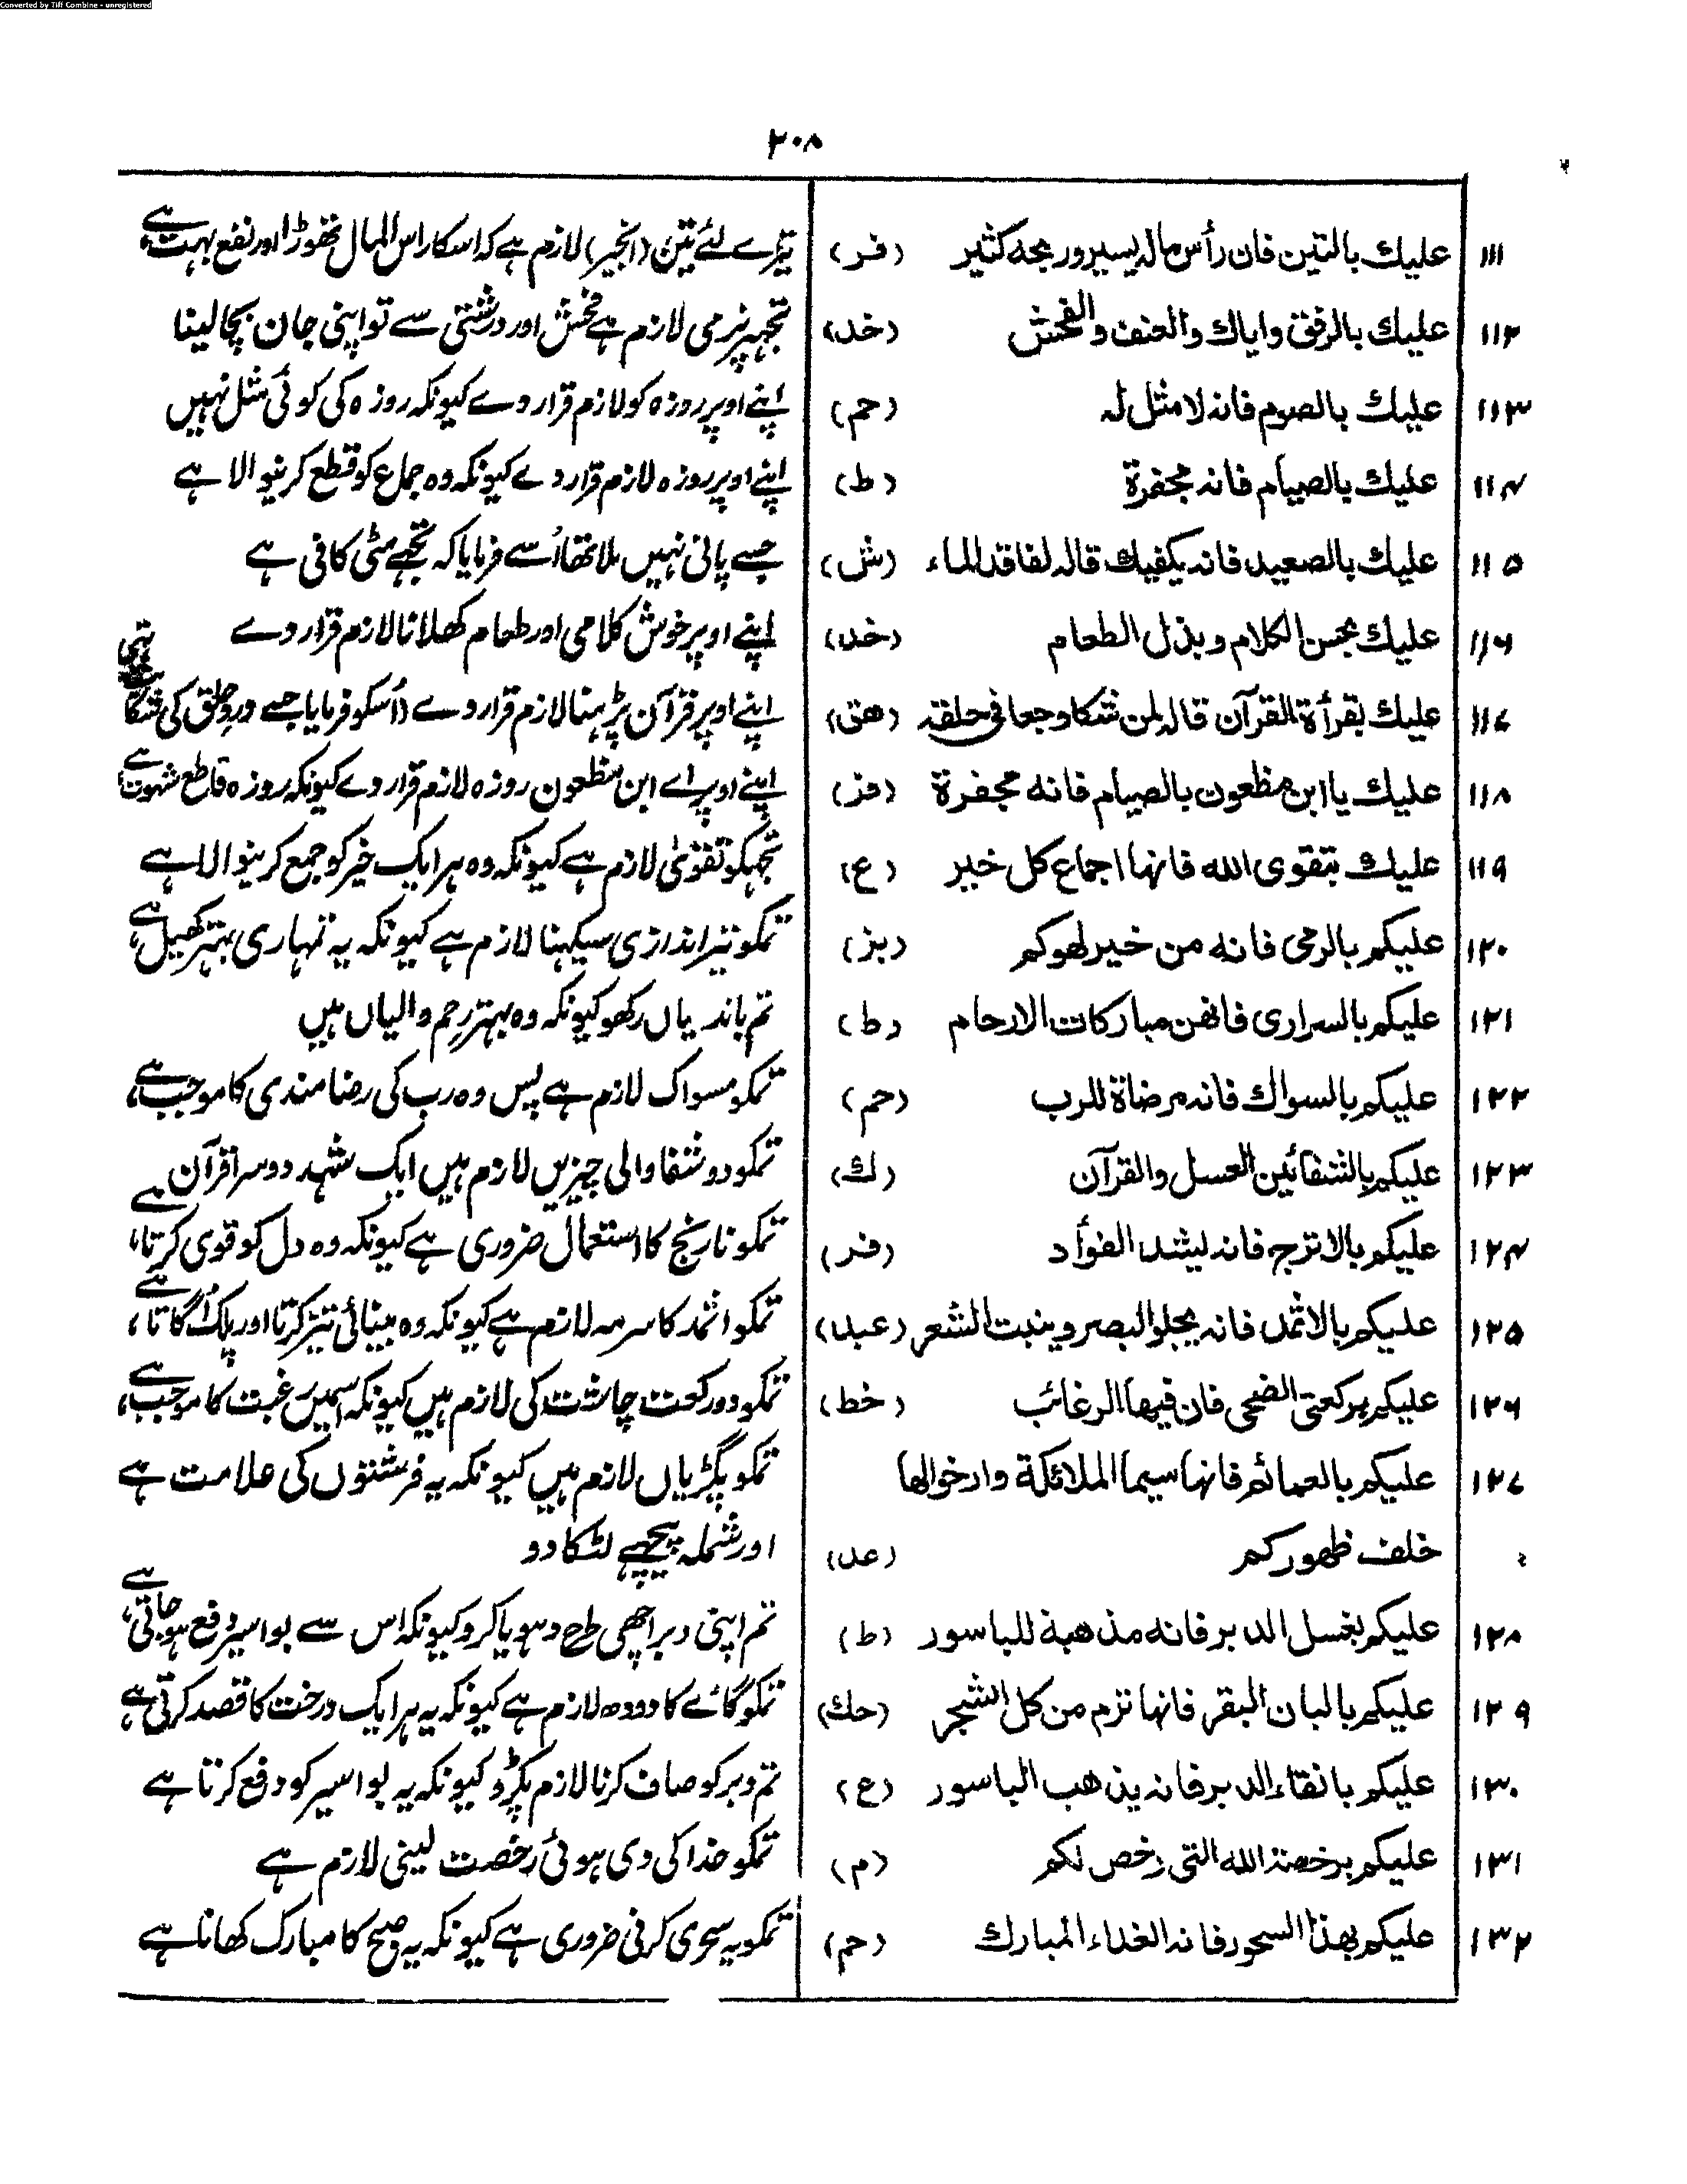 Converted by Tiff Combine - unregistered
۲۰۸
۱۱۱ عليك بالتين فان رأس ماله يسير وربحه كثير (فر) تیرے لئے تین (انجیر) لازم ہے کہ اسکا راس المال تھوڑا اور نفع بہت ہے
۱۱۲ عليك بالرفق واياك والعنف والفحش (خد) تجہپر نرمی لازم ہے فحش اور درشتی سے تو اپنی جان بچا لینا
۱۱۳ عليك بالصوم فانه لا مثل له (حم) اپنے اوپر روزہ کو لازم قرار دے کیونکہ روزہ کی کوئی مثل نہیں
۱۱۴ عليك بالصيام فانه مجفرة (ط) اپنے اوپر روزہ لازم قرار دے کیونکہ وہ جماع کو قطع کرنیوالا ہے
۱۱۵ عليك بالصعيد فانه يكفيك قاله لفاقد الماء (ش) جسے پانی نہیں ملا تھا اُسے فرمایا کہ تجھے مٹی کافی ہے
۱۱۶ عليك بحسن الكلام وبذل الطعام (خد) اپنے اوپر خوش کلامی اور طعام کھلانا لازم قرار دے
۱۱۷ عليك بقرأة القرآن قاله لمن شكا وجعا في حلقه (هق) اپنے اوپر قرآن پڑہنا لازم قرار دے (اُسکو فرمایا جسے درد حلق کی شکایت تہی
۱۱۸ عليك يا ابن مظعون بالصيام فانه مجفرة (فر) اپنے اوپر اے ابن مظعون روزہ لازم قرار دے کیونکہ روزہ قاطع شہوت ہے
۱۱۹ عليك بتقوى الله فانها اجماع كل خير (ع) تجہکو تقویٰ لازم ہے کیونکہ وہ ہر ایک خیر کو جمع کرنیوالا ہے
۱۲۰ عليكم بالرمى فانه من خير لهوكم (بز) تمکو تیر اندازی سیکہنا لازم ہے کیونکہ یہ تمہاری بہتر کھیل ہے
۱۲۱ عليكم بالسرارى فانهن مباركات الارحام (ط) تم باندیاں رکھو کیونکہ وہ بہتر رحم والیاں ہیں
۱۲۲ عليكم بالسواك فانه مرضاة للرب (حم) تمکو مسواک لازم ہے پس وہ رب کی رضامندی کا موجب ہے
۱۲۳ عليكم بالشفائين العسل والقرآن (ك) تمکو دو شفا والی چیزیں لازم ہیں ایک شہد دوسرا قرآن
۱۲۴ عليكم بالاترج فانه يشد الفوأد (فر) تمکو نارنج کا استعمال ضروری ہے کیونکہ وہ دل کو قوی کرتا ہے
۱۲۵ عليكم بالاثمد فانه يجلو البصر وينبت الشعر (عبد) تمکو اثمد کا سرمہ لازم ہے کیونکہ وہ بینائی تیز کرتا اور پلک اُگاتا ہے
۱۲۶ عليكم بركعتى الضحى فان فيها الرغائب (خط) تمکو دو رکعت چاشت کی لازم ہیں کیونکہ اسمیں رغبت کا موجب ہے
۱۲۷ عليكم بالعمائم فانها سيما الملائكة وارخوالها تمکو پگڑیاں لازم ہیں کیونکہ یہ فرشتوں کی علامت ہے
خلف ظهوركم (عد) اور شملہ پیچھے لٹکا دو
۱۲۸ عليكم بغسل الدبر فانه مذهبة للباسور (ط) تم اپنی دبر اچھی طرح دہویا کرو کیونکہ اس سے بواسیر دفع ہو جاتی ہے
۱۲۹ عليكم بالبان البقر فانها ترم من كل الشجر (حك) تمکو گائے کا دودھ لازم ہے کیونکہ یہ ہر ایک درخت کا قصد کرتی ہے
۱۳۰ عليكم بانقاء الدبر فانه يذهب الباسور (ع) تم دبر کو صاف کرنا لازم پکڑو کیونکہ یہ بواسیر کو دفع کرتا ہے
۱۳۱ عليكم برخصة الله التى رخص لكم (م) تمکو خدا کی دی ہوئی رخصت لینی لازم ہے
۱۳۲ عليكم بهذا السحور فانه الغداء المبارك (حم) تمکو یہ سحری کرنی ضروری ہے کیونکہ یہ صبح کا مبارک کھانا ہے